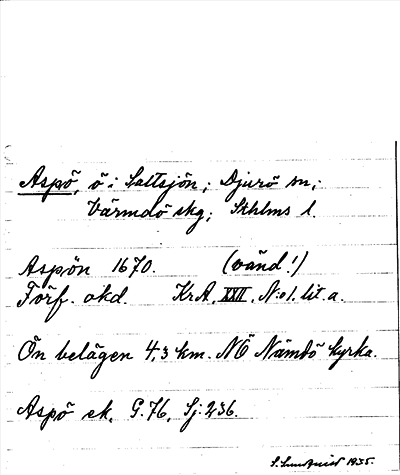 Aspö, ö i Saltsjön; Djurö sn;
Värmdö skg; Sthlms l.
Aspön 1670. (vänd!)
Förf. okd. KrA, XXII, N:o 1. lit. a.
Ön belägen 4,3 km. NÖ Nämdö kyrka.
Aspö ek. G. 76, Sj. 236.
S. Sundquist 1935.